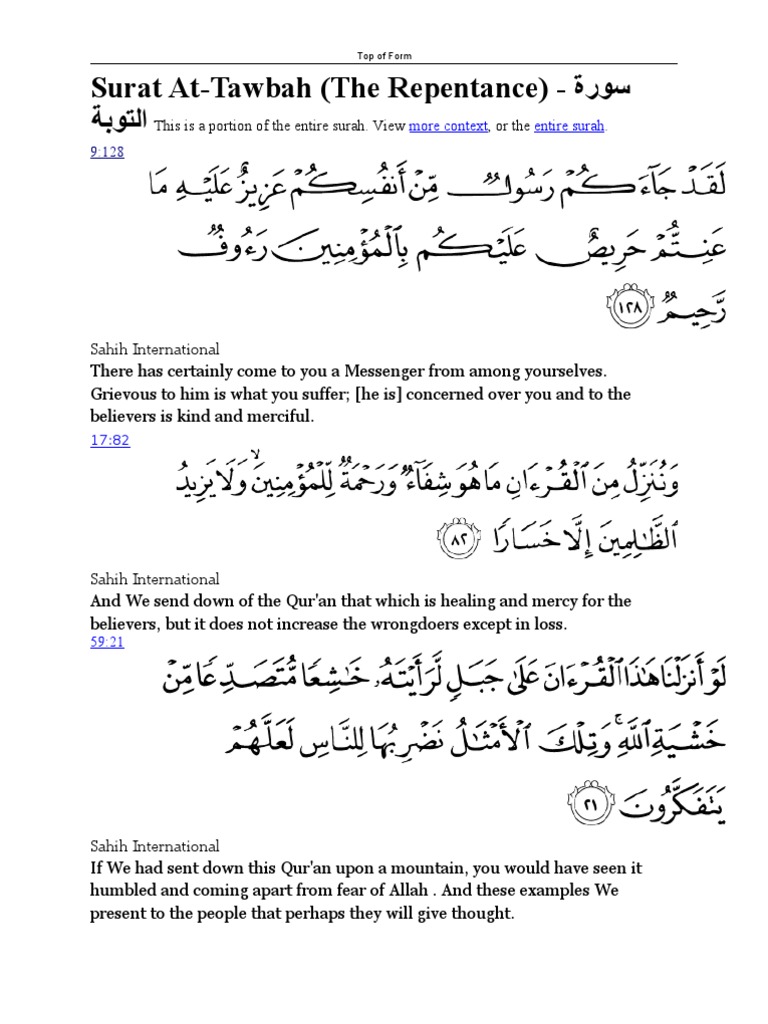 Top of Form
Surat At-Tawbah (The Repentance) - سورة
التوبة This is a portion of the entire surah. View more context, or the entire surah.
9:128
لَقَدْ جَآءَكُمْ رَسُولٌ مِّنْ أَنفُسِكُمْ عَزِيزٌ عَلَيْهِ مَا
عَنِتُّمْ حَرِيصٌ عَلَيْكُم بِٱلْمُؤْمِنِينَ رَءُوفٌ
رَّحِيمٌ ١٢٨
Sahih International
There has certainly come to you a Messenger from among yourselves.
Grievous to him is what you suffer; [he is] concerned over you and to the
believers is kind and merciful.
17:82
وَنُنَزِّلُ مِنَ ٱلْقُرْءَانِ مَا هُوَ شِفَآءٌ وَرَحْمَةٌ لِّلْمُؤْمِنِينَ ۙ وَلَا يَزِيدُ
ٱلظَّٰلِمِينَ إِلَّا خَسَارًا ٨٢
Sahih International
And We send down of the Qur'an that which is healing and mercy for the
believers, but it does not increase the wrongdoers except in loss.
59:21
لَوْ أَنزَلْنَا هَٰذَا ٱلْقُرْءَانَ عَلَىٰ جَبَلٍ لَّرَأَيْتَهُۥ خَٰشِعًا مُّتَصَدِّعًا مِّنْ
خَشْيَةِ ٱللَّهِ ۚ وَتِلْكَ ٱلْأَمْثَٰلُ نَضْرِبُهَا لِلنَّاسِ لَعَلَّهُمْ
يَتَفَكَّرُونَ ٢١
Sahih International
If We had sent down this Qur'an upon a mountain, you would have seen it
humbled and coming apart from fear of Allah . And these examples We
present to the people that perhaps they will give thought.